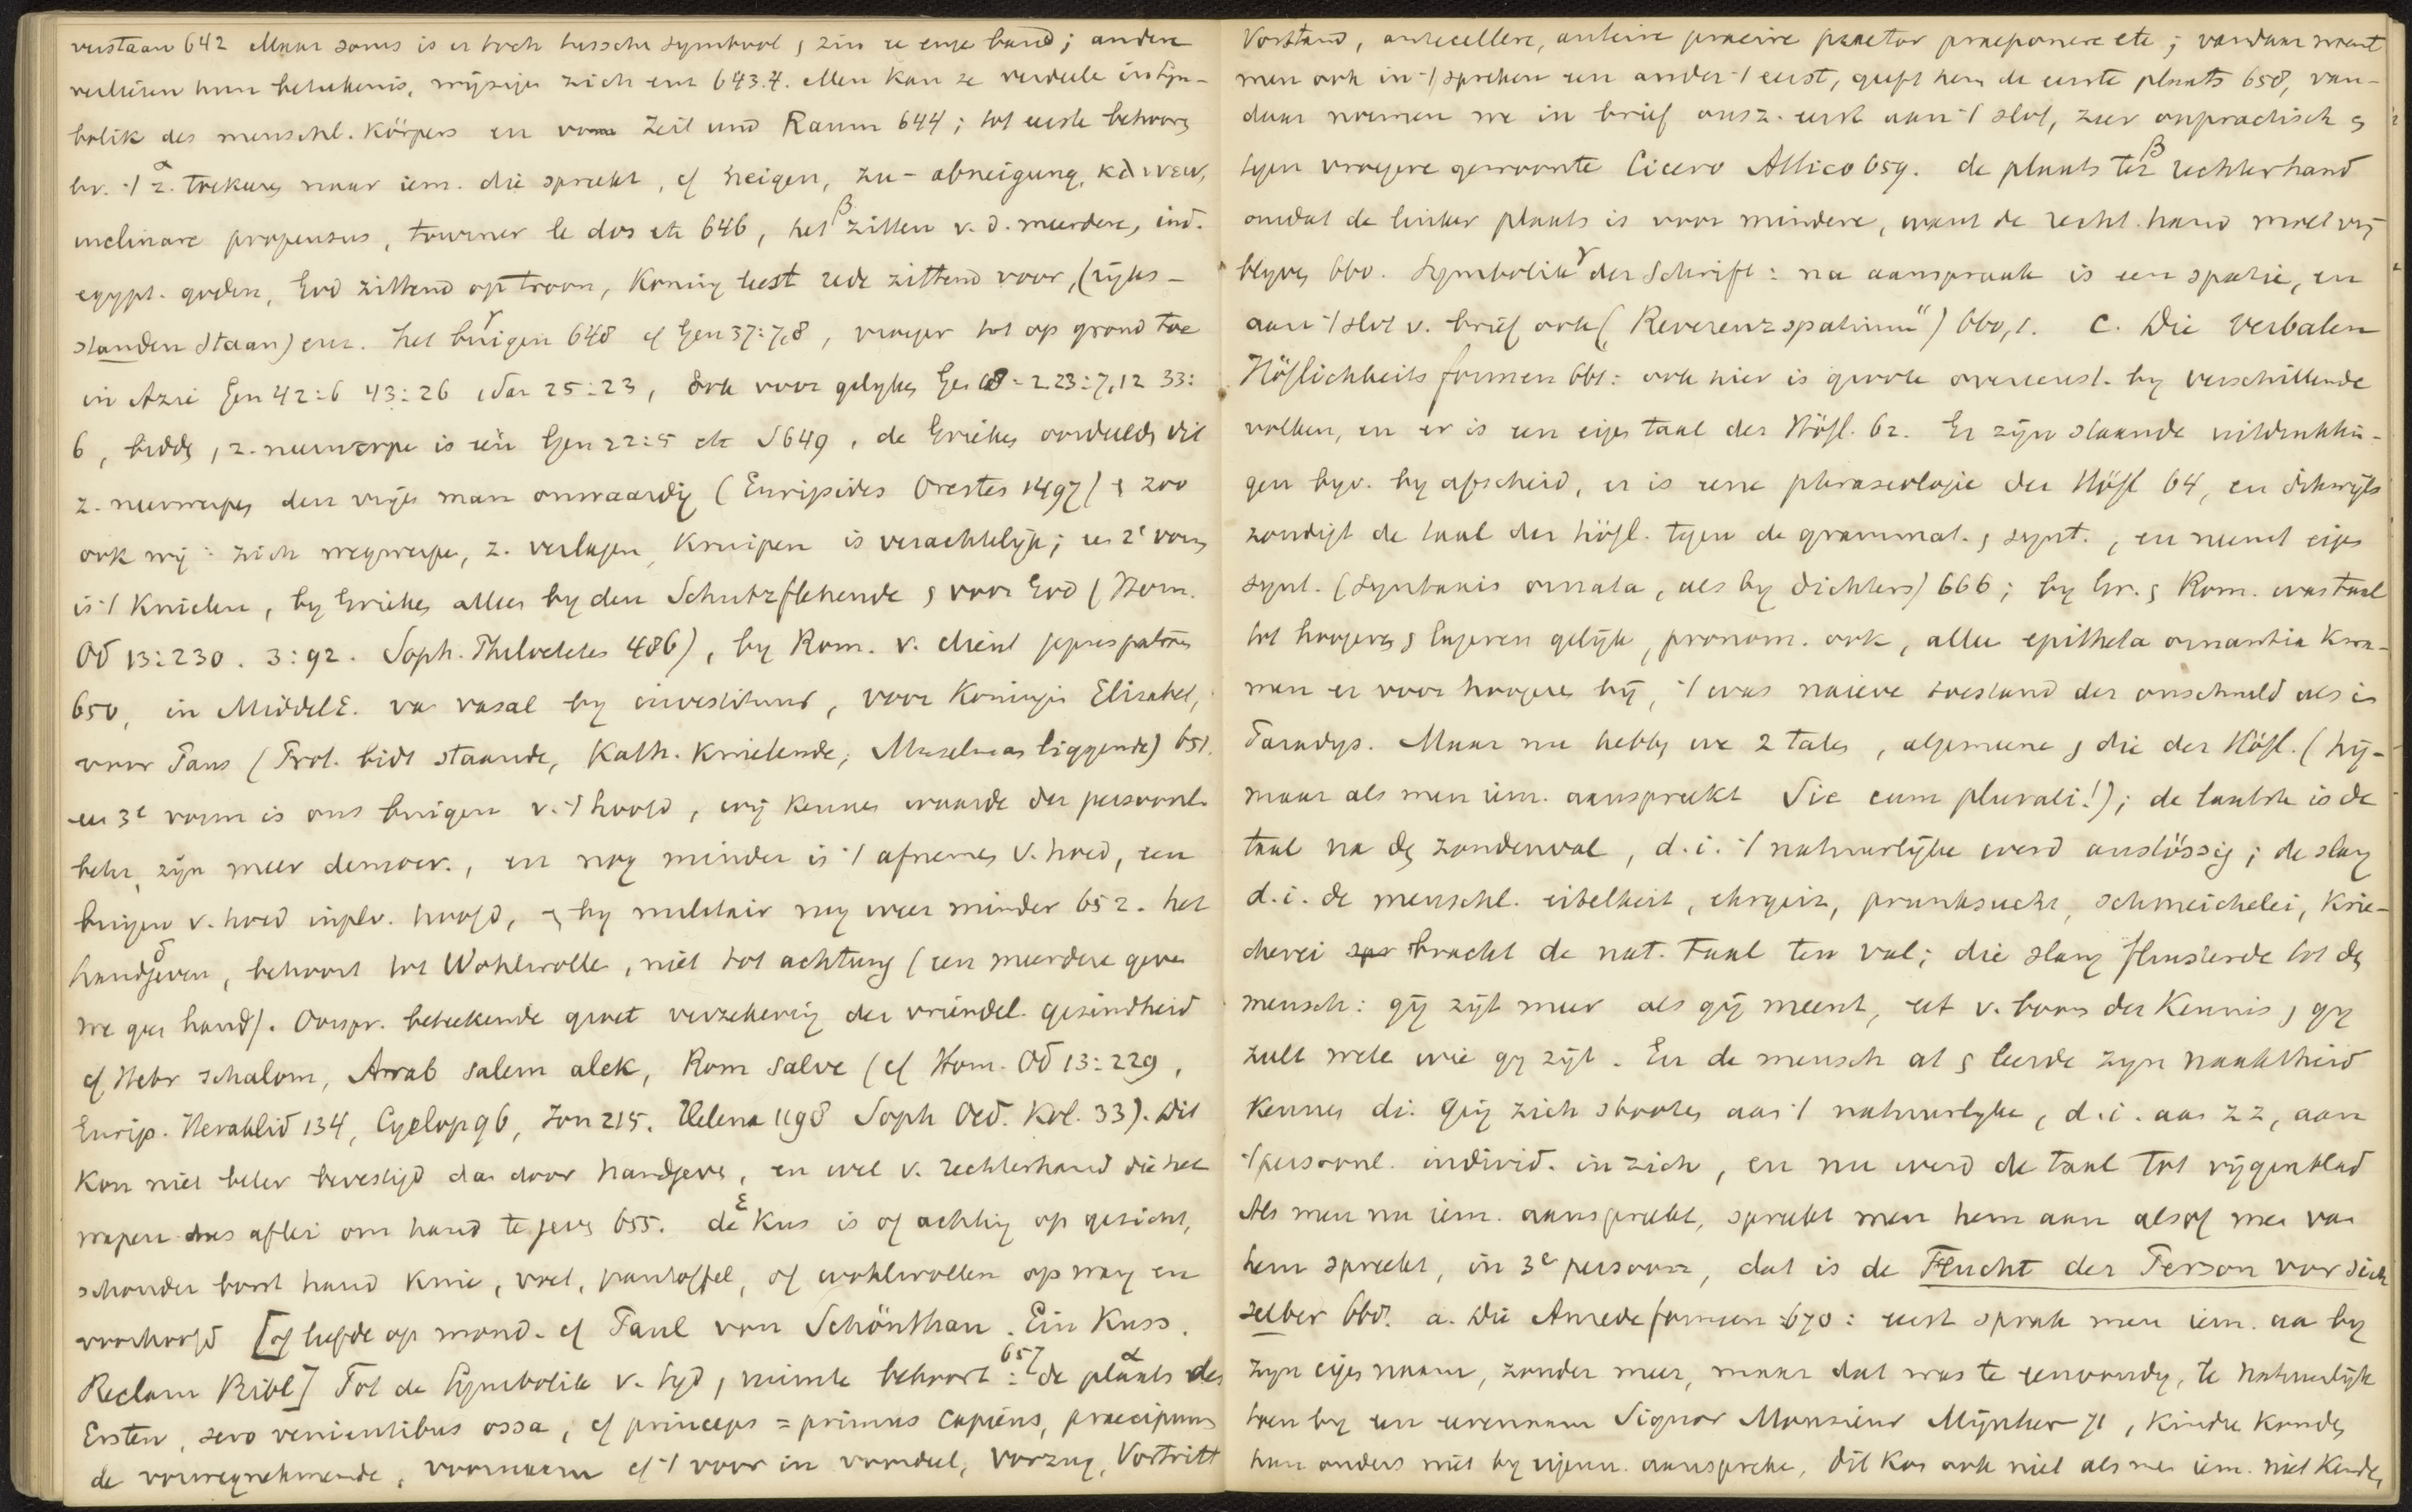 verstaan 642 Maar soms is er toch tusschen symbool & zin ze enge band; andere
verliezen hun beteekenis, wijzigen zich enz 643.4. Men kan ze verdeele in Sym-
bolik des menschl. Körpers en vom Zeit und Raum 644; tot eerste behoort
bv. 't α z. trekken naar iem. die spreekt, cf neigen, zu- abneigung, κλινειν,
inclinare propensus, tourner le dos etc 646, het β zitten v. d. meerdere, ind.
egypt. goden, God zittend op troon, Koning leest rede zittend voor, (rijks-
standen staan) enz. het γ buigen 648 cf Gen 37:7,8, vroeger tot op grond toe
in Azie Gen 42:6 43:26 1 Sam 25:23, ook voor gelijken Gen 18:2 23:7,12 33:
6, bidden & z. neerwerpe is één Gen 22:5 etc 649, de Grieken oordeelden dit
z. neerwerpen den vrijen man onwaardig (Euripides Orestes 1497) & zoo
ook wij: zich wegwerpe, z. verlagen, Kruipen is verachtelijk; een 2e vorm
is 't Knielen, by Grieken alleen by den Schutzflehende & voor God (Hom.
Od 13:230. 3:92. Soph. Philoctetes 486), by Rom. v. client jegens patroon
650, in MiddelE. van vasal by investituur, voor Koningin Elizabet,
voor Paus (Prot. bidt staande, Kath. Knielende, Muselman liggende) 651.
een 3e vorm is ons buigen v. 't hoofd, wij kennen waarde der persoonl.
beter, zijn meer democr., en nog minder is 't afnemen v. hoed, een
buigen v. hoed inplv. hoofd, & by militair nog weer minder 652. het
δ handgeven, behoort tot Wohlwolle, niet tot achtung (een meerdere geven
we geen hand). Oorspr. beteekende groet verzekering der vriendel. gezindheid
cf Hebr schalom, Arab salem alek, Rom salve (cf Hom. Od 13:229,
Eurip. Heraklid 134, Cyclop 96, Ion 215. Helena 1198 Soph Oed. Kol. 33). Dit
kon niet beter bevestigd dan door handgeven, en wel v. rechterhand die het
wapen dus aflei om hand te geven 655. de ε Kus is of achting op gezicht,
schouder borst hand Knie, voet, pantoffel, of wohlwollen op wang en
voorhoofd [of liefde op mond. cf Paul von Schönthan. Ein Kuss.
Reclam Bibl] Tot de Symbolik v. tijd & ruimte behoort 657: de α plaats des
Ersten, sero venientibus ossa, cf princeps = primus capiens, praecipuus
de vooraangnehmende, voornaam cf 't voor in voordeel, Vorzug, Vortritt
Vorstand, antecellere, anteire praeire praetor praeponere etc; vandaar noemt
men ook in 't spreken een ander 't eerst, geeft hem de eerste plaats 658, van-
daar noemen we in brief onsz. eerst aan 't slot, zeer onpractisch &
tegen vroegere gewoonte Cicero Attico 659. de plaats β ter rechterhand
omdat de linker plaats is voor mindere, want de recht. hand moet vrij
blyven 660. Symbolik γ der Schrift: na aanspraak is een spatie, en
aan 't slot v. brief ook („Reverenzspatium") 660,1. C. Die Verbalen
Höflichkeitsformen 661: ook hier is groote overeenst. by verschillende
volken, en er is een eigen taal der Höfl. 62. Er zijn staande uitdrukkin-
gen byv. by afscheid, er is eene phraseologie der Höfl 64, en dikwijls
zondigt de taal der höfl. tegen de grammat. & synt., en neemt eigen
synt. (syntaxis ornata, als by dichters) 666; by Gr. & Rom. was taal
tot hoogeren & lageren gelijk, pronom. ook, alleen epitheta ornantia kwa-
men er voor hoogere bij, 't was naieve toestand der onschuld als in
Paradys. Maar nu hebben we 2 talen, algemeene & die der Höfl. (hij-
maar als men iem. aanspreekt Sie cum plurali!); de laatste is de
taal na den zondenval, d.i. 't natuurlijke werd anstössig; de slang
d.i. de menschl. eitelheit, ehrgeiz, prunksucht, schmeichelei, Krie-
cherei bracht de nat. taal ten val; die slang fluisterde tot den
mensch: gij zijt meer als gij meent, eet v. boom der Kennis & gy
zult wete wie gy zijt. En de mensch at & leerde zyn naaktheid
kennen d.i. ging zich stooten aan 't natuurlyke, d.i. aan zz, aan
't persoonl. individ. in zich, en nu werd de taal tot vijgenblad
Als men nu iem. aanspreekt, spreekt men hem aan alsof men van
hem spreekt, in 3e persoon, dat is de Flucht der Person vor sich
selber 668. a. Die Anredeformen 670: eerst sprak men iem. aan by
zyn eigen naam, zonder meer, maar dat was te eenvoudig, te natuurlijk
toen by een eerenaam Signor Monsieur Mijnheer 71, Kindre konden
hun ouders niet by eigenn. aanspreke, dit kon ook niet als men iem. niet kende,